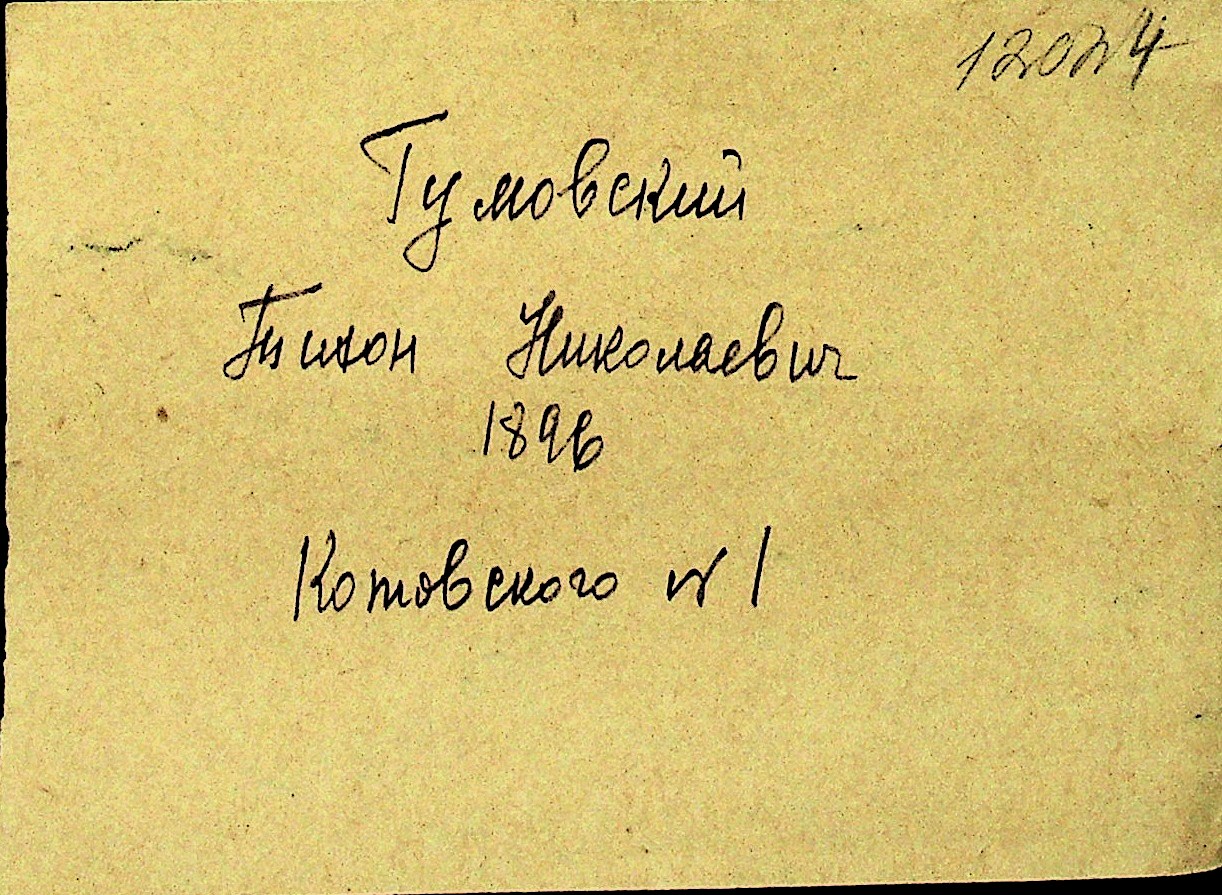 12024
Гумовский
Тихон Николаевич
1896
Котовского № 1